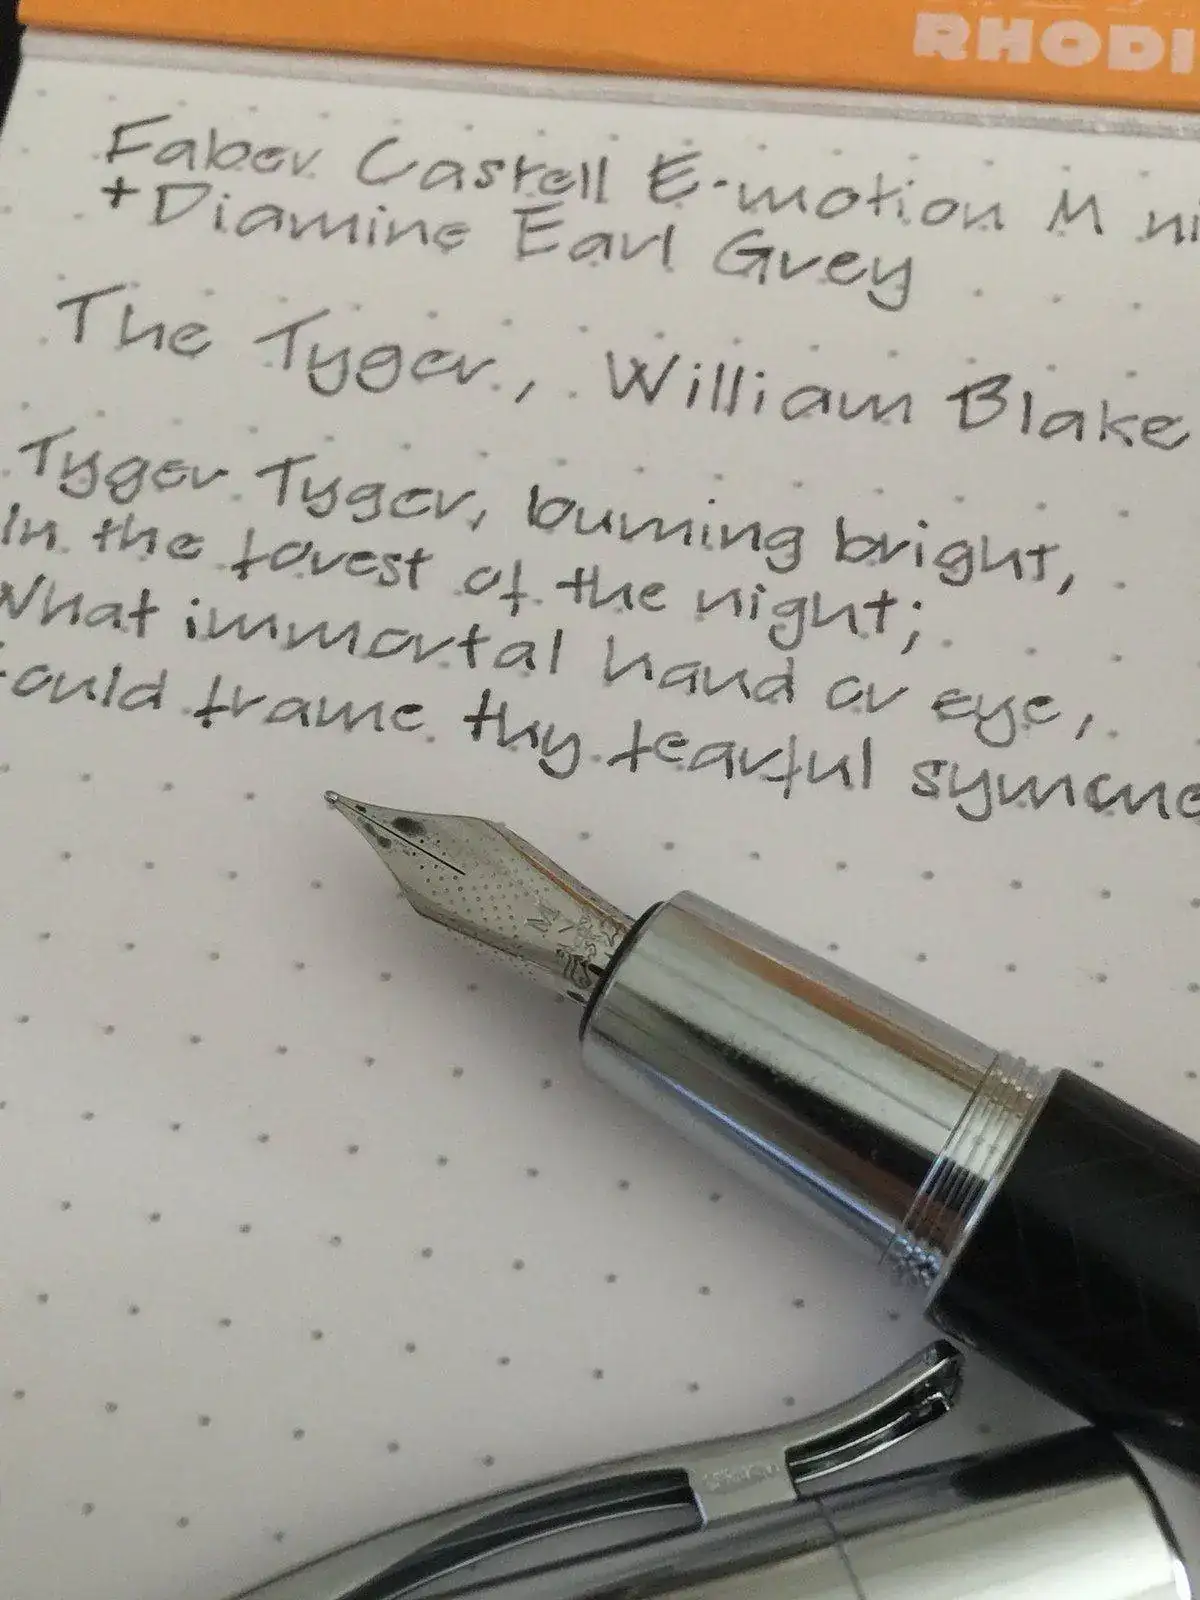 RHODI
Faber Castell E-motion M ni
+Diamine Earl Grey
The Tyger, William Blake
Tyger Tyger, burning bright,
In the forest of the night;
What immortal hand or eye,
ould frame thy fearful symme
M